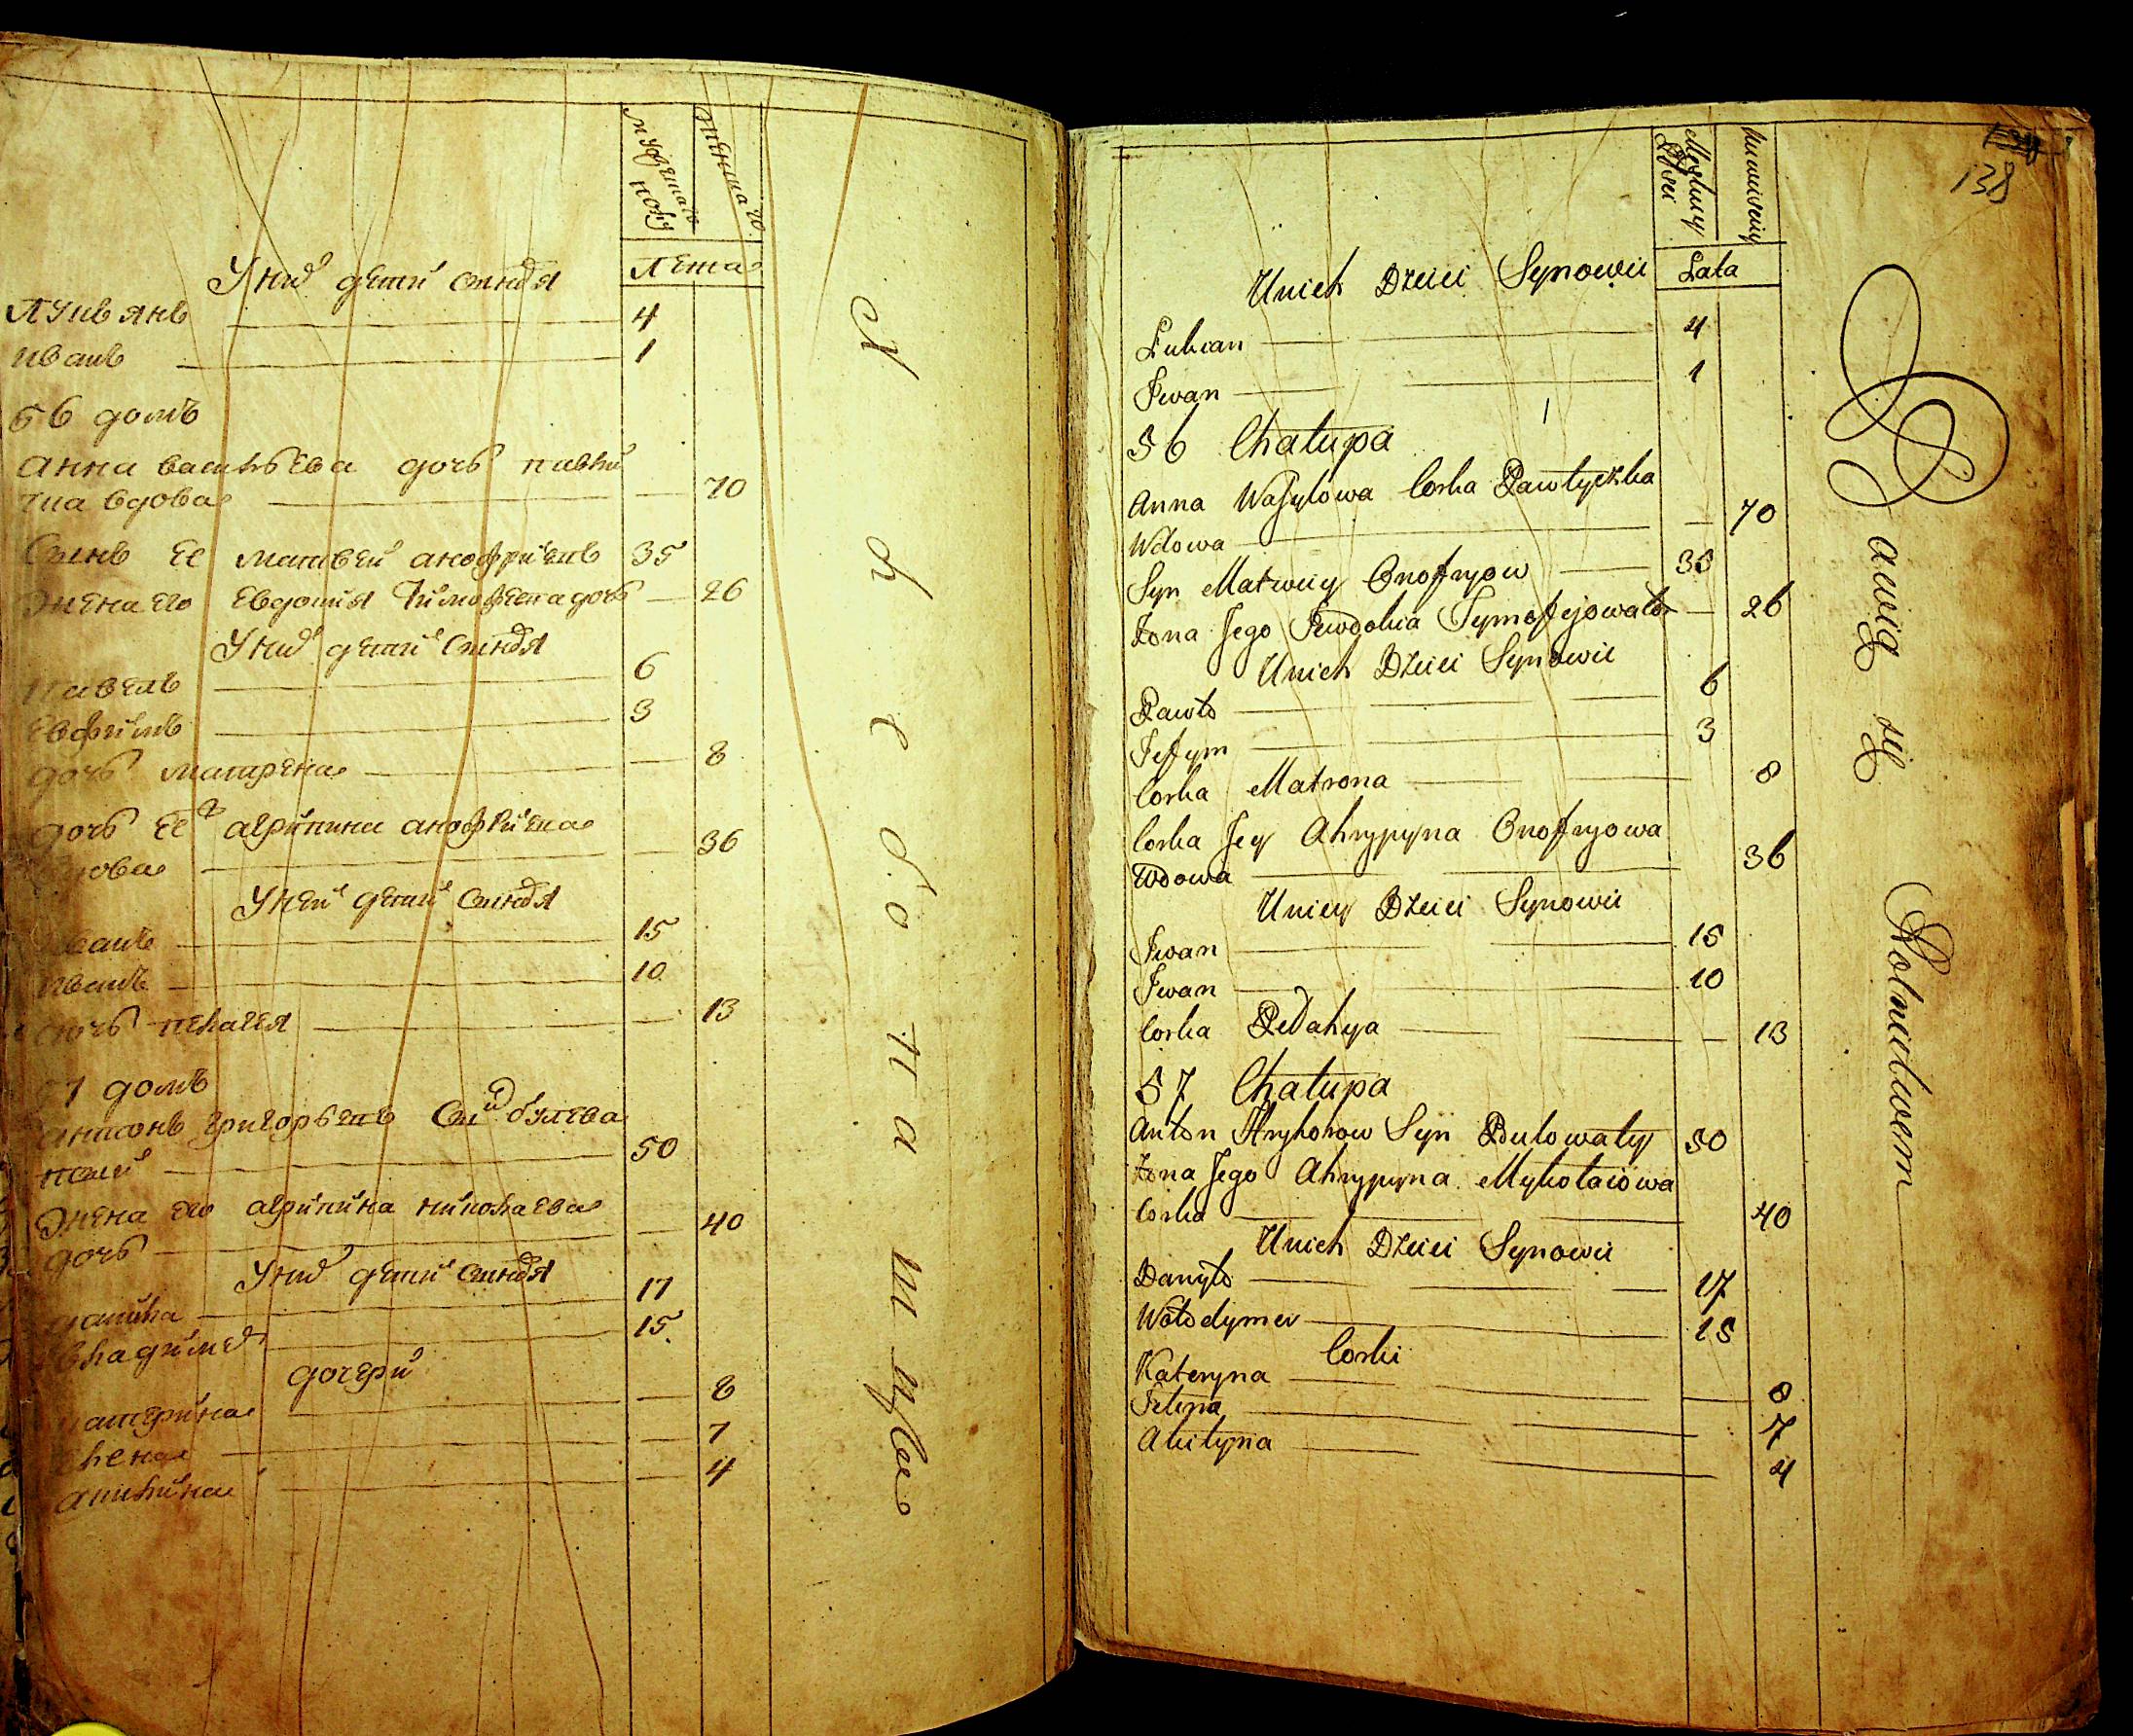 мужеска
полу
женска
Лета
У них детей сыновя
Лукъянъ 4
иванъ 1
56 домъ
анна васильева дочь павлы
чка вдова 70
Сынъ ее матвей анофриевъ 35
жена его евдокия Тимофеева дочь 26
У них детей сыновя
павелъ 6
евфимъ 3
дочь матрена 8
дочь ее агрипина анофриева
вдова 36
У ней детей сыновя
иванъ 15
иванъ 10
дочь пелагея 13
57 домъ
антонъ григорьевъ Сын булава
тый 50
жена его агрипина николаева
дочь 40
У них детей сыновя
данила 17
владимер 15
дочери
катерина 8
елена 7
акилина 4
хлебопашцы
138
Męskiey
Płci
Lata
Unich Dzieci Synowie
Łukian 4
Iwan 1
56 Chałupa
Anna Wasylowa Corka Pawłyczka
Wdowa 70
Syn Matwiey Onofryow 35
Żona Jego Jewdokia Tymofejowa Cor 26
Unich Dzieci Synowie
Pawło 6
Jefym 3
Corka Matrona 8
Corka Jey Ahrypyna Onofryowa
Wdowa 36
Uniey Dzieci Synowie
Iwan 15
Iwan 10
Corka Pelahya 13
57 Chałupa
Anton Hryhorow Syn Bulowaty 50
Żona Jego Ahrypyna Mykołaiowa
Corka 40
Unich Dzieci Synowie
Danyło 17
Wołodymer 15
Corki
Kateryna 8
Jelena 7
Akilyna 4
Bawią się Rolnictwem